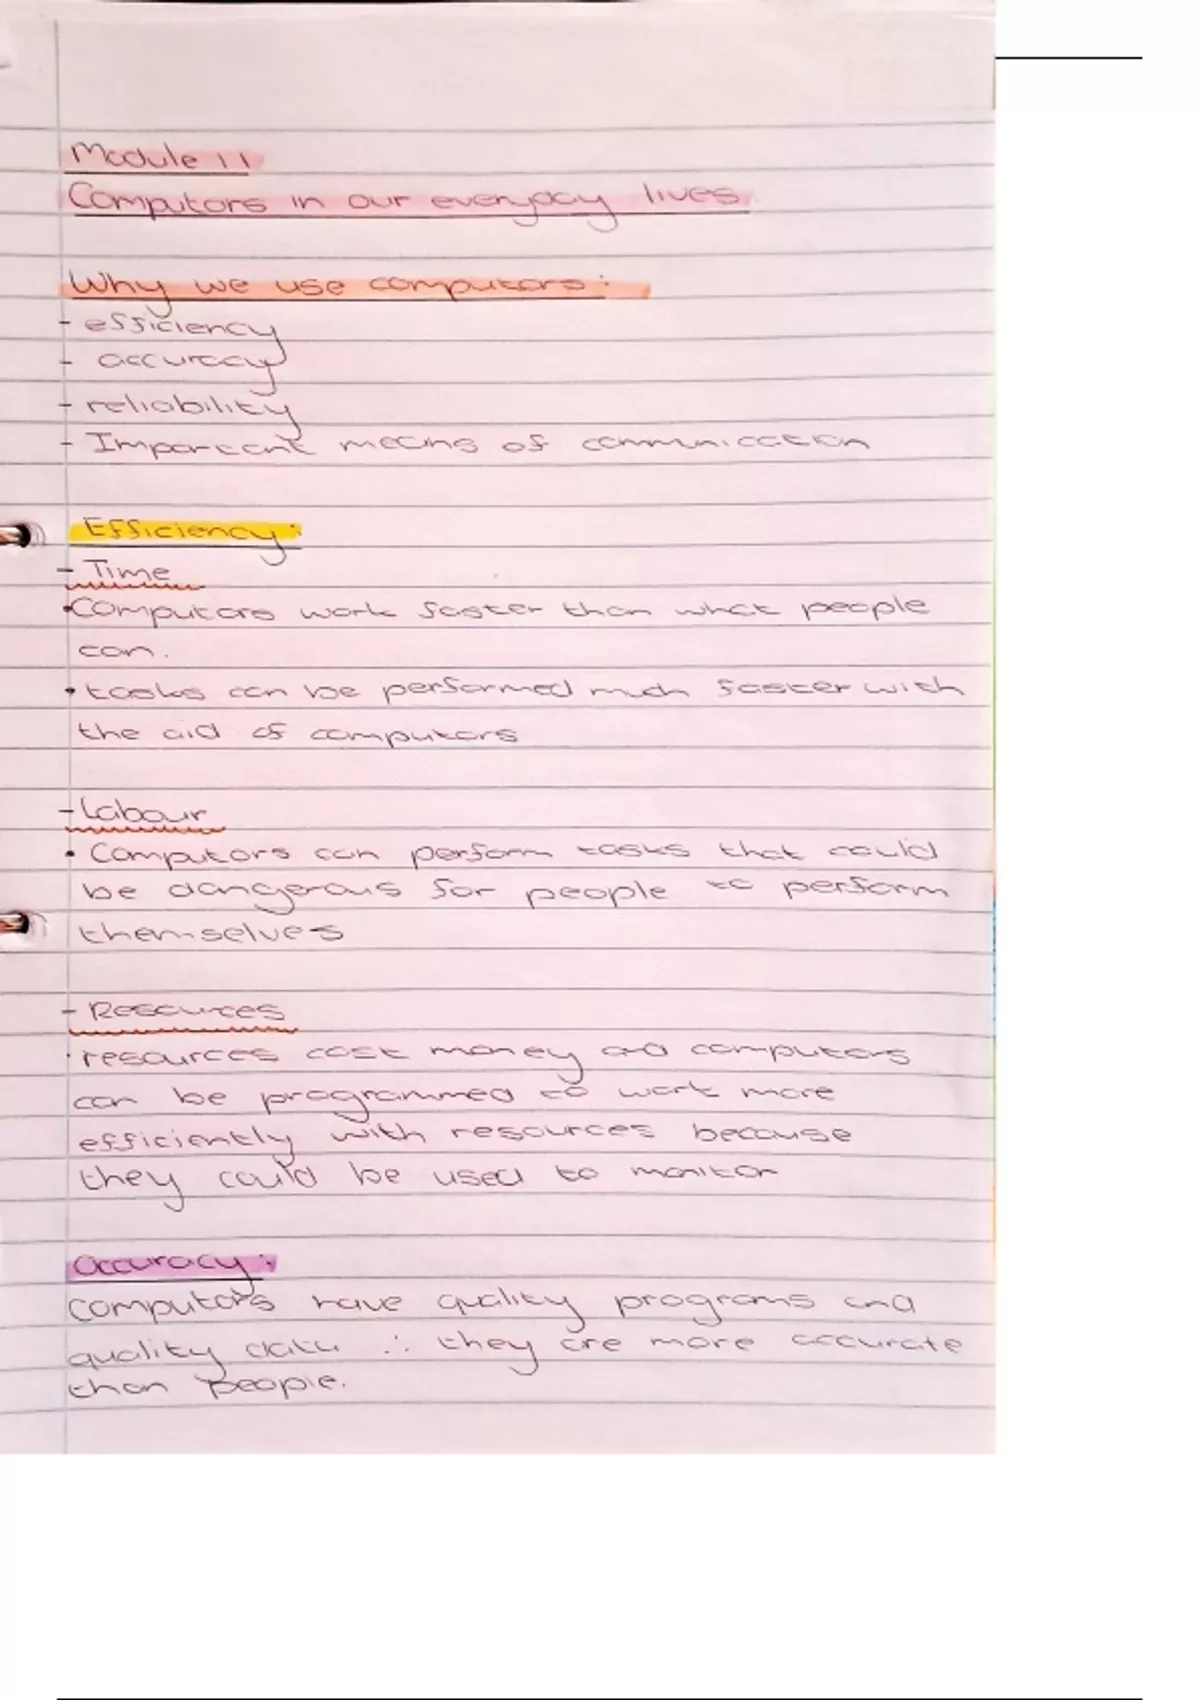 Module 11
Computors in our everyday lives.
Why we use computors:
- efficiency
- accuracy
- reliability
- Important means of communication
Efficiency:
- Time
• Computors work faster than what people
can.
• tasks can be performed much faster with
the aid of computors
- Labour
• Computors can perform tasks that could
be dangerous for people to perform
themselves
- Resources
• resources cost money and computors
can be programmed to work more
efficiently with resources because
they could be used to monitor
accuracy:
Computors have quality programs and
quality data ∴ they are more accurate
than people.